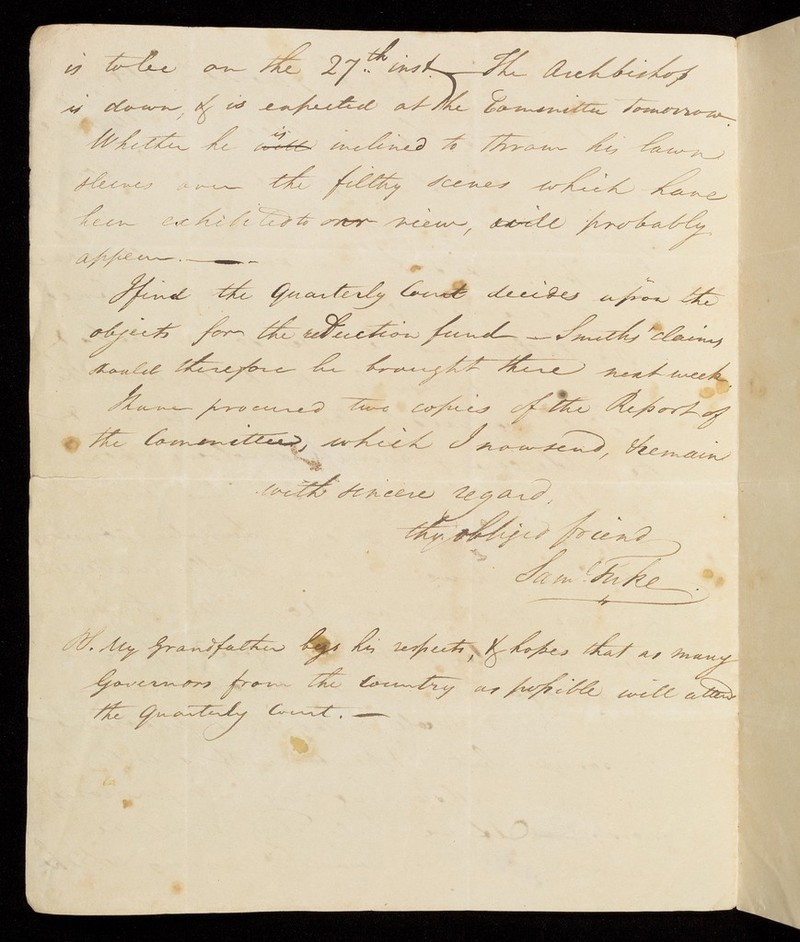 is to be on the 27th inst. — The Archbishop
is down, & is expected at the Committee tomorrow.
Whether he is inclined to throw his lawn
sleeves over the filthy scenes which have
been exhibited to our view, will probably
appear. —
I find the Quarterly Court decides upon the
objects for the reduction fund — Smiths' claims
should therefore be brought there next week.
I have procured two copies of the Report of
the Committee, which I now send, & remain
with sincere regard,
thy obliged friend
Saml. Tuke.
PS. My Grandfather begs his respects, & hopes that as many
Governors from the country as possible will attend
the Quarterly Court. —